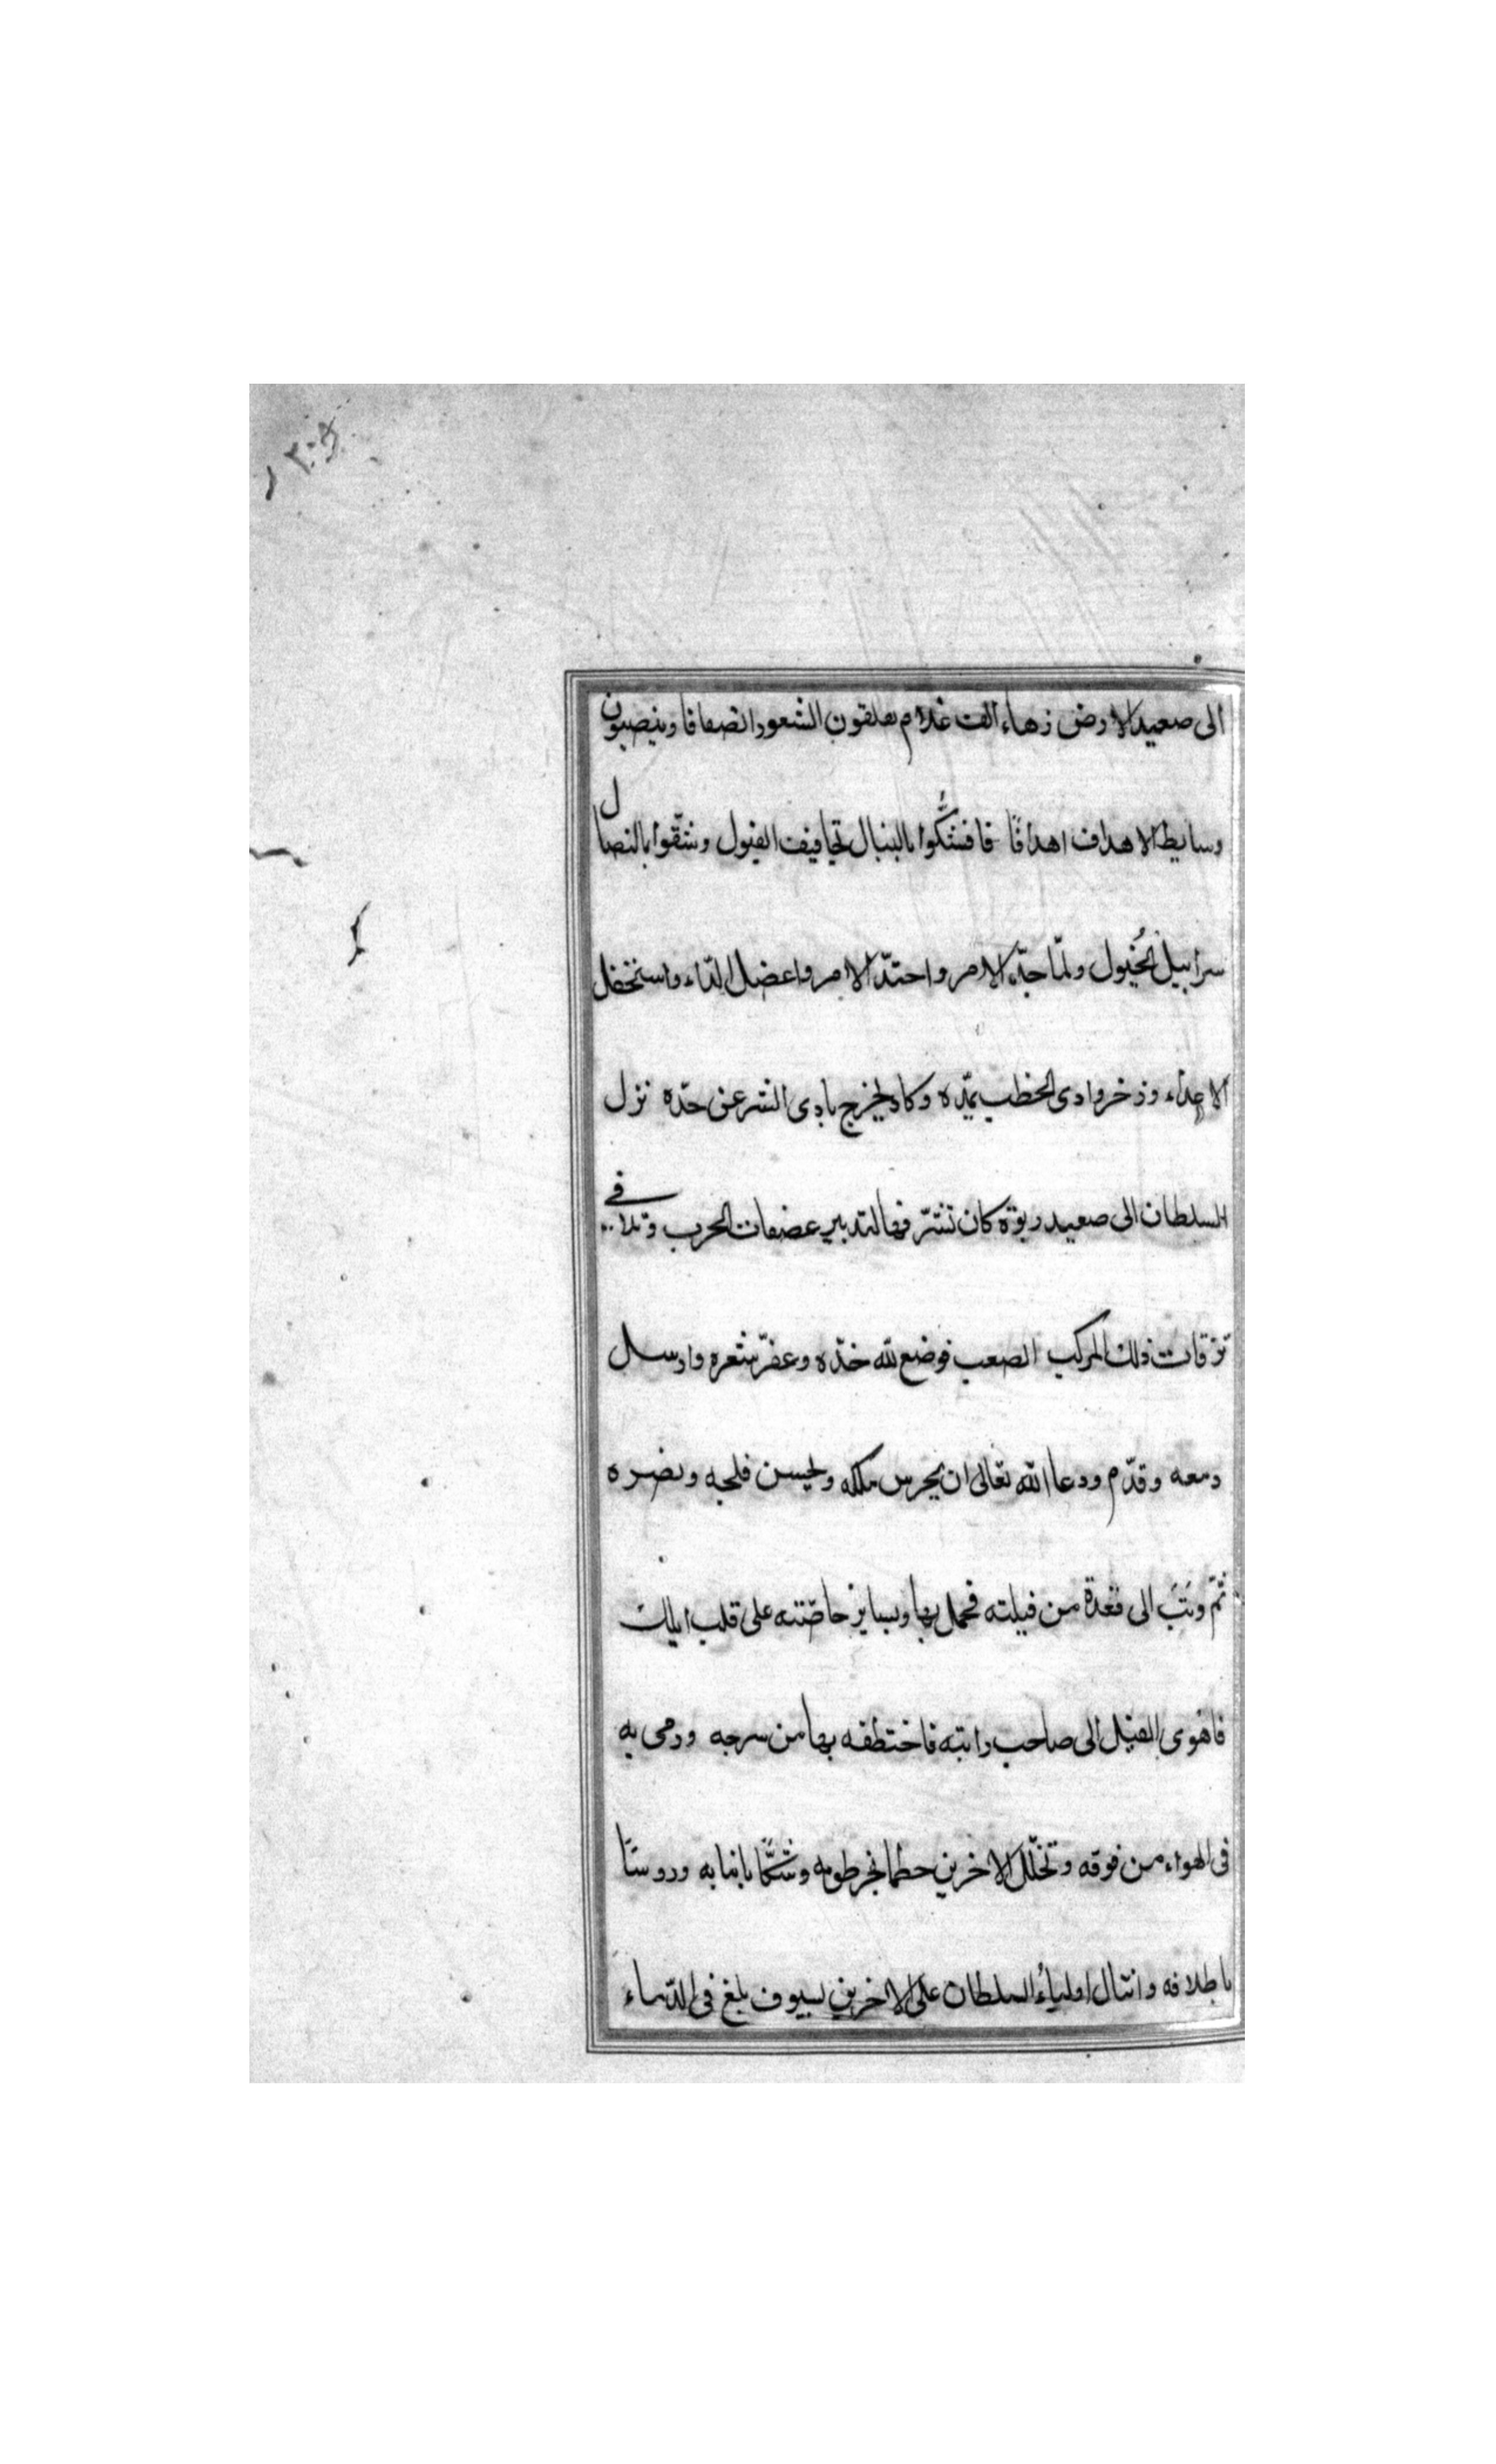 الى صعيد الارض زهاء الف غلام يعلقون الشعور انصافا وينصبون
وسايط الاهداف اهدافًا فافشكّوا بالنبال تجافيف الفيول وشقّوا بالنصال
سرابيل الخُيول ولمّا جدّ الامر واحتدّ الامر واعضل الدّاء واستفحل
الاعداء وذخر وادى الخطب بمدّه وكاد يخرج بادى الشر عن حدّه نزل
السلطان الى صعيد ربوة كان تشرّ فها لتدبير عضفات الحرب وتلافى
نزقات ذلك المركب الصعب فوضع لله خدّه وعفرّ شعره وارسل
دمعه وقدّم ودعا الله تعالى ان يحرس ملكه ويحسن فلجه ونصره
ثمّ وثب الى قعدة من فيلته فحمل بها وبساير خاصّته على قلب ايلك
فاهوى الفيل الى صاحب رايته فاختطفه بها من سرجه ورمى به
فى الهواء من فوقه وتخلّل الاخرين حطما بخرطومه وشكًّا بانيابه ودوسًا
باطلافه وانثال اولياء السلطان على الاخرين بسيوف بلغ فى الدّماء